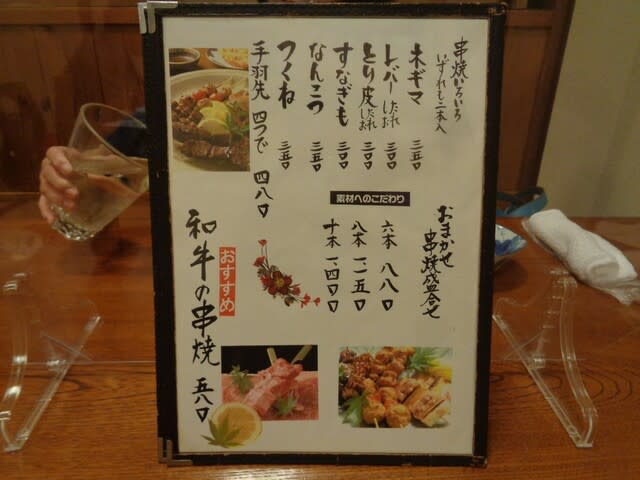 串焼いろいろ
いずれも二本入
ネギマ 三五〇
レバー しお たれ 三〇〇
とり皮 しお たれ 三〇〇
すなぎも 三〇〇
なんこつ 三五〇
つくね 三五〇
手羽先 四つで 四八〇
素材へのこだわり
おまかせ
串焼盛合せ
六本 八八〇
八本 一、一五〇
十本 一、四〇〇
おすすめ
和牛の串焼 五八〇